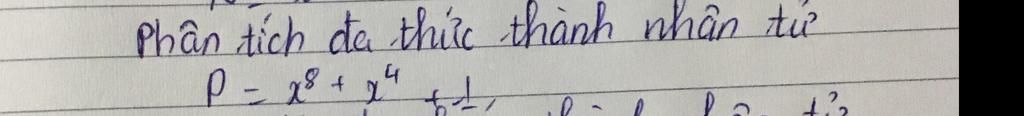 Phân tích đa thức thành nhân tử
P = x⁸ + x⁴ + 1